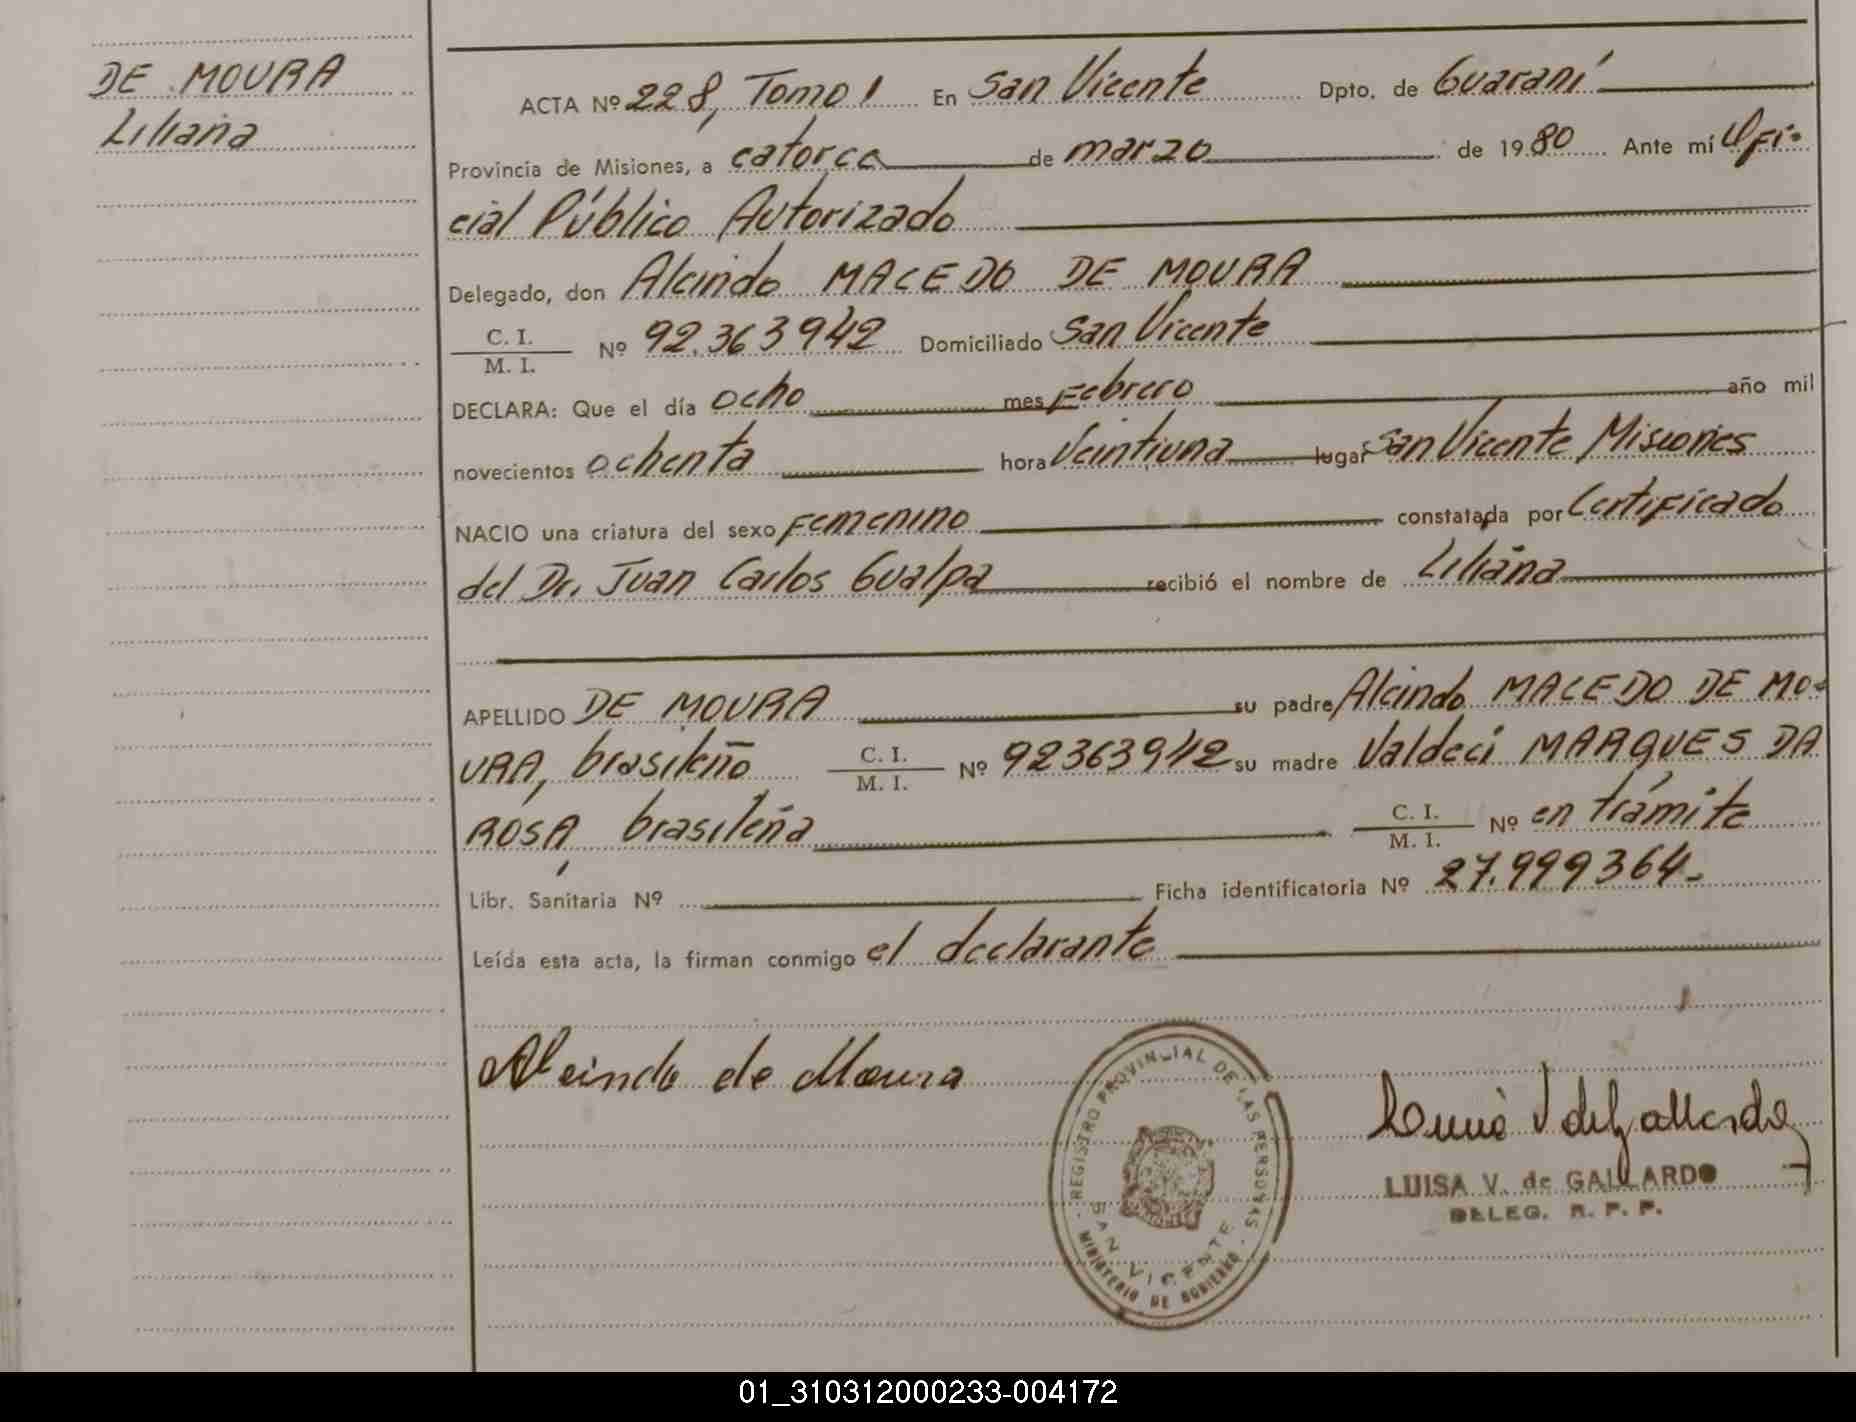 DE MOURA
Liliana
ACTA Nº 228, Tomo 1 En San Vicente Dpto. de Guaraní
Provincia de Misiones, a catorce de marzo de 1980 Ante mí Ofi-
cial Público Autorizado
Delegado, don Alcindo MACEDO DE MOURA
C. I.
M. I.
Nº 92.363942 Domiciliado San Vicente
DECLARA: Que el día ocho mes Febrero año mil
novecientos ochenta hora Veintiuna lugar San Vicente Misiones
NACIO una criatura del sexo Femenino constatada por Certificado
del Dr. Juan Carlos Gualpa recibió el nombre de Liliana
APELLIDO DE MOURA su padre Alcindo MACEDO DE MO-
URA, brasileño C. I. M. I. Nº 92363942 su madre Valdeci MARQUES DA
ROSA, brasileña C. I. M. I. Nº en trámite
Libr. Sanitaria Nº Ficha identificatoria Nº 27.999364-
Leída esta acta, la firman conmigo el declarante
Alcindo de Moura
REGISTRO PROVINCIAL DE LAS PERSONAS
SAN VICENTE
MINISTERIO DE GOBIERNO
Luisa V de Gallardo
LUISA V. de GALLARDO
DELEG. R. P. P.
01_310312000233-004172